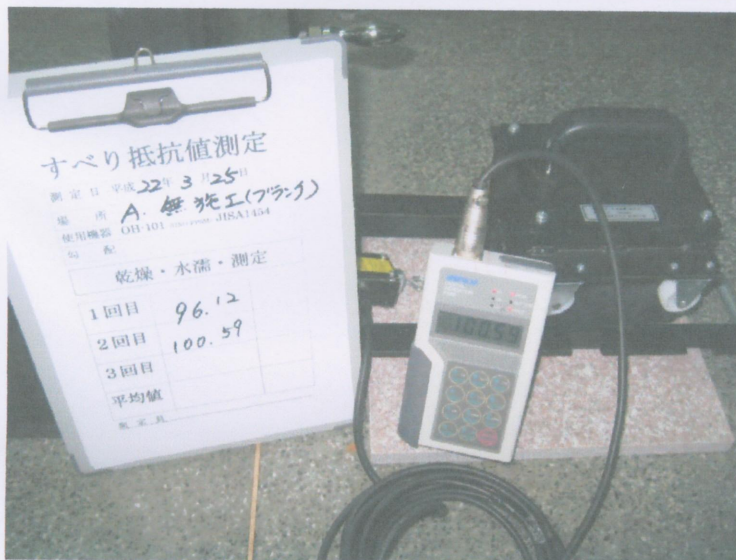 すべり抵抗値測定
測定日 平成22年3月25日
場所 A. 無施工(ブランク)
使用機器 OH-101 JISA1454
勾配
乾燥・水濡・測定
1回目 96.12
2回目 100.59
3回目
平均値
測定員
100.59